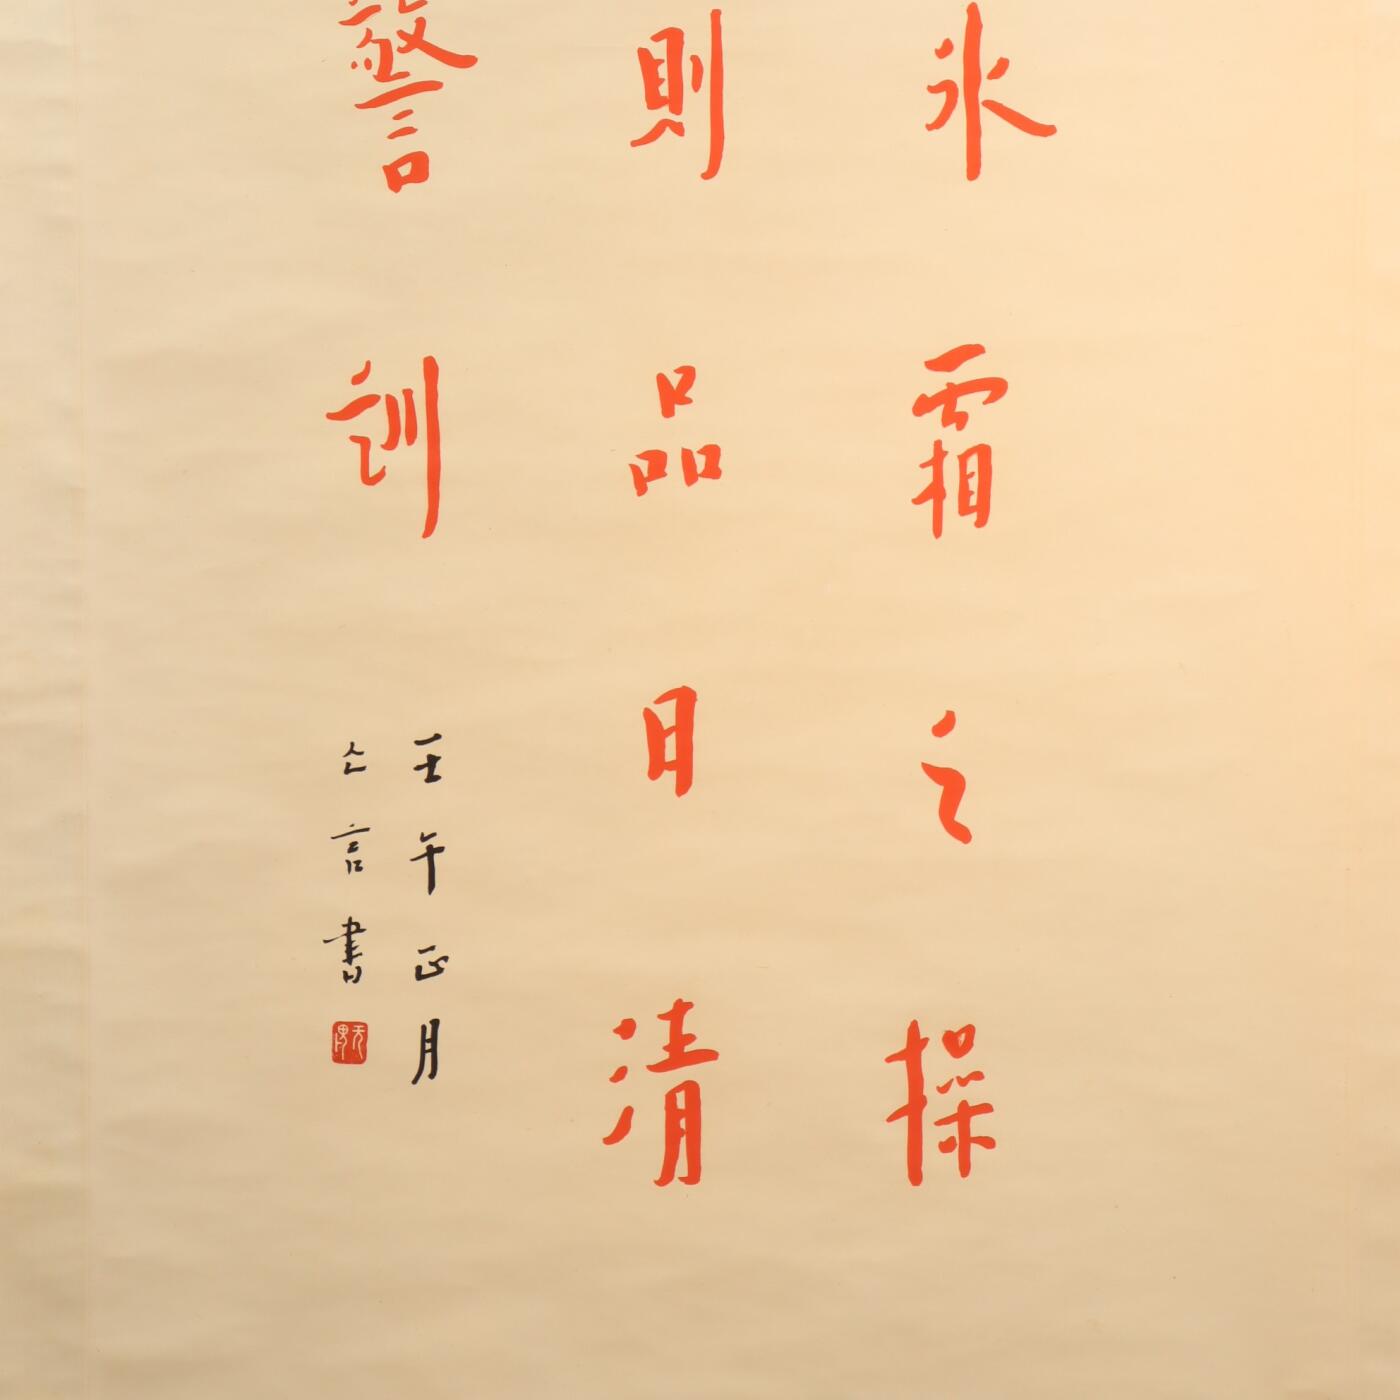 氷霜之操
則品日清
警訓
壬午正月
亾言書